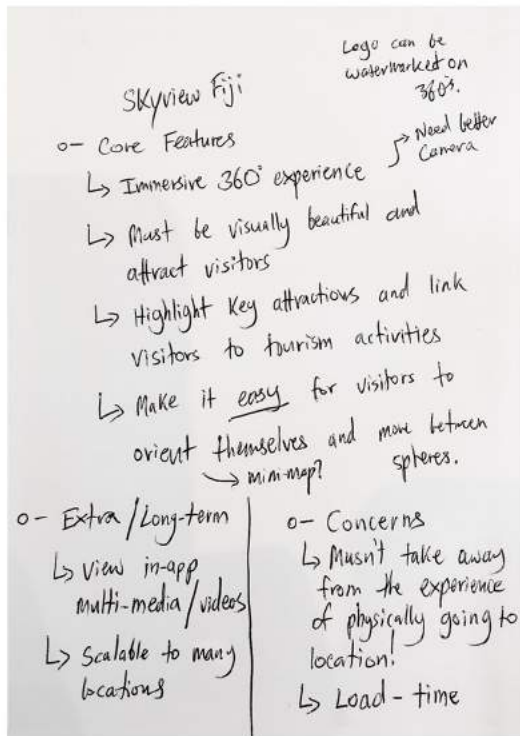 Logo can be
watermarked on
360's.
Skyview Fiji
o- Core Features
↳ Immersive 360° experience
→ Need better
Camera
↳ Must be visually beautiful and
attract visitors
↳ Highlight key attractions and link
visitors to tourism activities
↳ Make it easy for visitors to
orient themselves and move between
spheres.
↳ mini-map?
o- Extra/Long-term
↳ View in-app
multi-media/videos
↳ Scalable to many
locations
o- Concerns
↳ Musn't take away
from the experience
of physically going to
location!
↳ Load-time